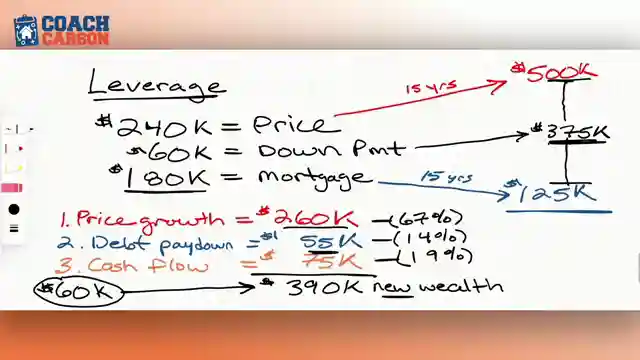 COACH
CARBON
Leverage
$240K = Price
15 yrs
$500K
$60K = Down Pmt
$375K
$180K = mortgage
15 yrs
$125K
1. Price growth = $260K – (67%)
2. Debt paydown = $55K – (14%)
3. Cash flow = $75K – (19%)
$60K → $390K new wealth